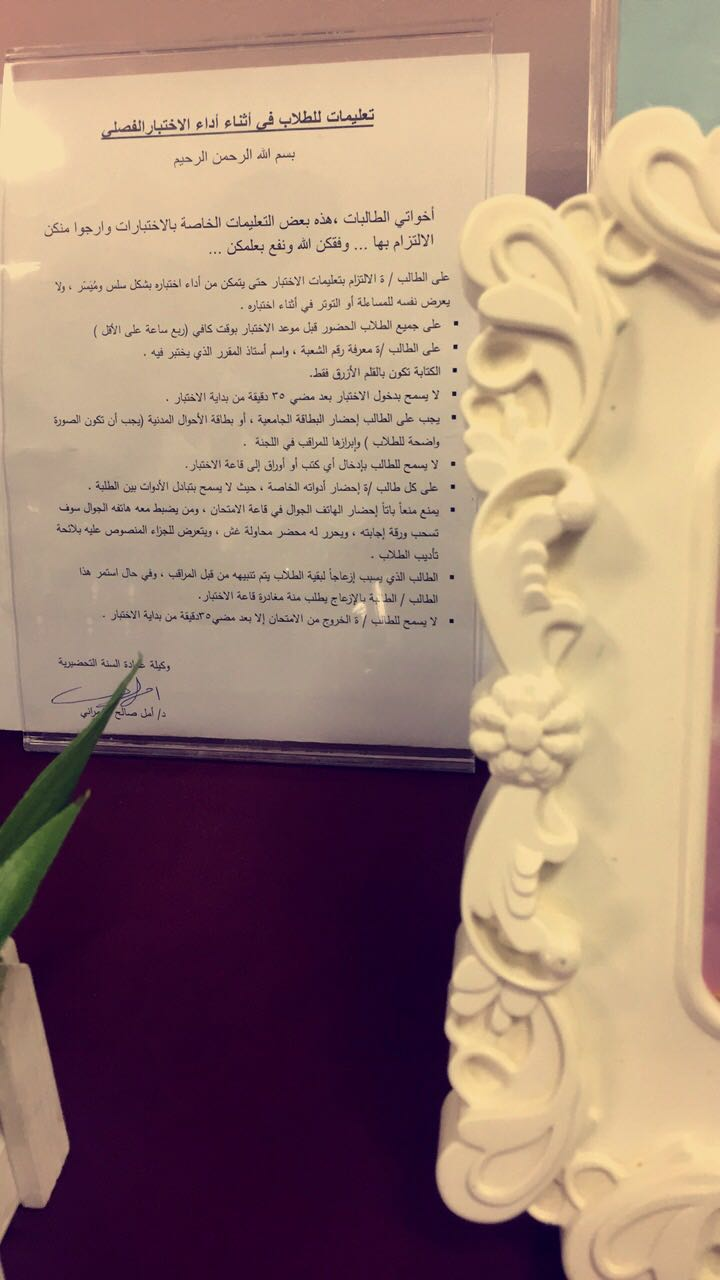 تعليمات للطلاب في أثناء أداء الاختبار الفصلي
بسم الله الرحمن الرحيم
أخواتي الطالبات ،هذه بعض التعليمات الخاصة بالاختبارات وارجوا منكن
الالتزام بها ... وفقكن الله ونفع بعلمكن ...
على الطالب / ة الالتزام بتعليمات الاختبار حتى يتمكن من أداء اختباره بشكل سلس ومُيَسّر ، ولا
يعرض نفسه للمساءلة أو التوتر في أثناء اختباره .
▪ على جميع الطلاب الحضور قبل موعد الاختبار بوقت كافي (ربع ساعة على الأقل )
▪ على الطالب /ة معرفة رقم الشعبة ، واسم أستاذ المقرر الذي يختبر فيه .
▪ الكتابة تكون بالقلم الأزرق فقط.
▪ لا يسمح بدخول الاختبار بعد مضي ٣٥ دقيقة من بداية الاختبار .
▪ يجب على الطالب إحضار البطاقة الجامعية ، أو بطاقة الأحوال المدنية (يجب أن تكون الصورة
واضحة للطلاب ) وإبرازها للمراقب في اللجنة .
▪ لا يسمح للطالب بإدخال أي كتب أو أوراق إلى قاعة الاختبار.
▪ على كل طالب /ة إحضار أدواته الخاصة ، حيث لا يسمح بتبادل الأدوات بين الطلبة .
▪ يمنع منعاً باتاً إحضار الهاتف الجوال في قاعة الامتحان ، ومن يضبط معه هاتفه الجوال سوف
تسحب ورقة إجابته ، ويحرر له محضر محاولة غش ، ويتعرض للجزاء المنصوص عليه بلائحة
تأديب الطلاب .
▪ الطالب الذي يسبب إزعاجاً لبقية الطلاب يتم تنبيهه من قبل المراقب ، وفي حال استمر هذا
الطالب / الطالبة بالإزعاج يطلب منة مغادرة قاعة الاختبار.
▪ لا يسمح للطالب / ة الخروج من الامتحان إلا بعد مضي٣٥دقيقة من بداية الاختبار .
وكيلة عمادة السنة التحضيرية
د/ أمل صالح